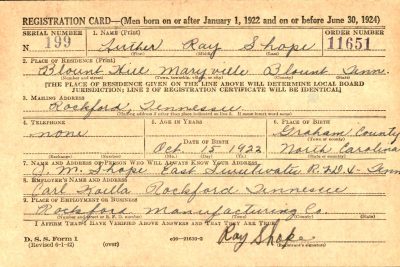 REGISTRATION CARD—(Men born on or after January 1, 1922 and on or before June 30, 1924)
SERIAL NUMBER 1. NAME (Print) ORDER NUMBER
N 199 Luther Ray Shope 11651
(First) (Middle) (Last)
2. PLACE OF RESIDENCE (Print)
Blount Hill Maryville Blount Tenn.
(Number and street) (Town, township, village, or city) (County) (State)
[THE PLACE OF RESIDENCE GIVEN ON THE LINE ABOVE WILL DETERMINE LOCAL BOARD
JURISDICTION; LINE 2 OF REGISTRATION CERTIFICATE WILL BE IDENTICAL]
3. MAILING ADDRESS
Rockford, Tennessee
(Mailing address if other than place indicated on line 2. If same insert word same)
4. TELEPHONE 5. AGE IN YEARS 6. PLACE OF BIRTH
none Graham County
DATE OF BIRTH
Oct. 15 1922 North Carolina
7. NAME AND ADDRESS OF PERSON WHO WILL ALWAYS KNOW YOUR ADDRESS
J. M. Shope East Sweetwater R.F.D. Tenn
8. EMPLOYER'S NAME AND ADDRESS
Carl Rockford Tennessee
9. PLACE OF EMPLOYMENT OR BUSINESS
Rockford Manufacturing Co.
I AFFIRM THAT I HAVE VERIFIED ABOVE ANSWERS AND THAT THEY ARE TRUE.
Ray Shope
D. S. S. Form 1 (over) (Registrant's signature)
(Revised 6-1-42)